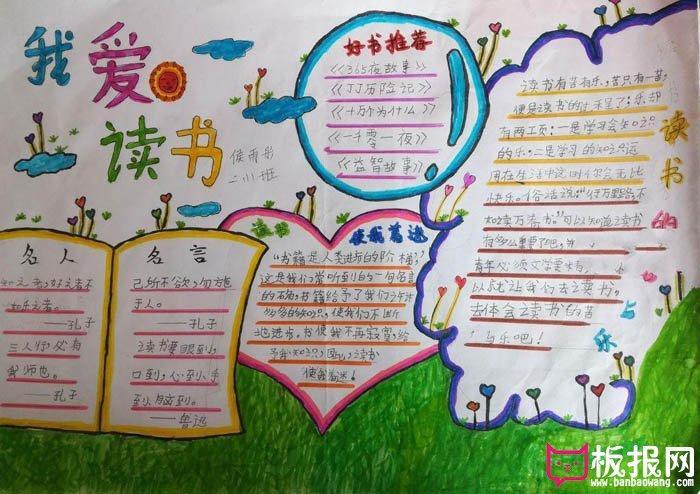 我爱
读书
侯雨彤
二小班
好书推荐
《365夜故事》
《JJ历险记》
《十万个为什么》
《一千零一夜》
《益智故事》
读书的
苦与乐
读书有苦有乐,苦只有一苦,
便是读书的时
乐却
有两工页:一是学习会知识
的乐,二是学习的知识运
用在生活中这时你会无比
快乐。俗话说:“行万里路不
如读万卷书。”可以知道读书
有多么重要了吧,
青年必须文学
以就让我们去读书。
去体会读书的苦
与乐吧!
读书
使我着迷
“书籍是人类进步的阶梯,”
这是我们常听到的一句名言
的确,书籍给予了我们许许
多多的知识,使我们不断
地进步。书使我不再寂寞,给
予我知识,因此,读书
使我着迷!
名人
名言
知之者,好之者不
如乐之者。
——孔子
三人行,必有
我师也。
——孔子
己所不欲,勿施
于人。
——孔子
读书要眼到,
口到,心到,手
到,脑到。
——鲁迅
板报网
www.banbaowang.com